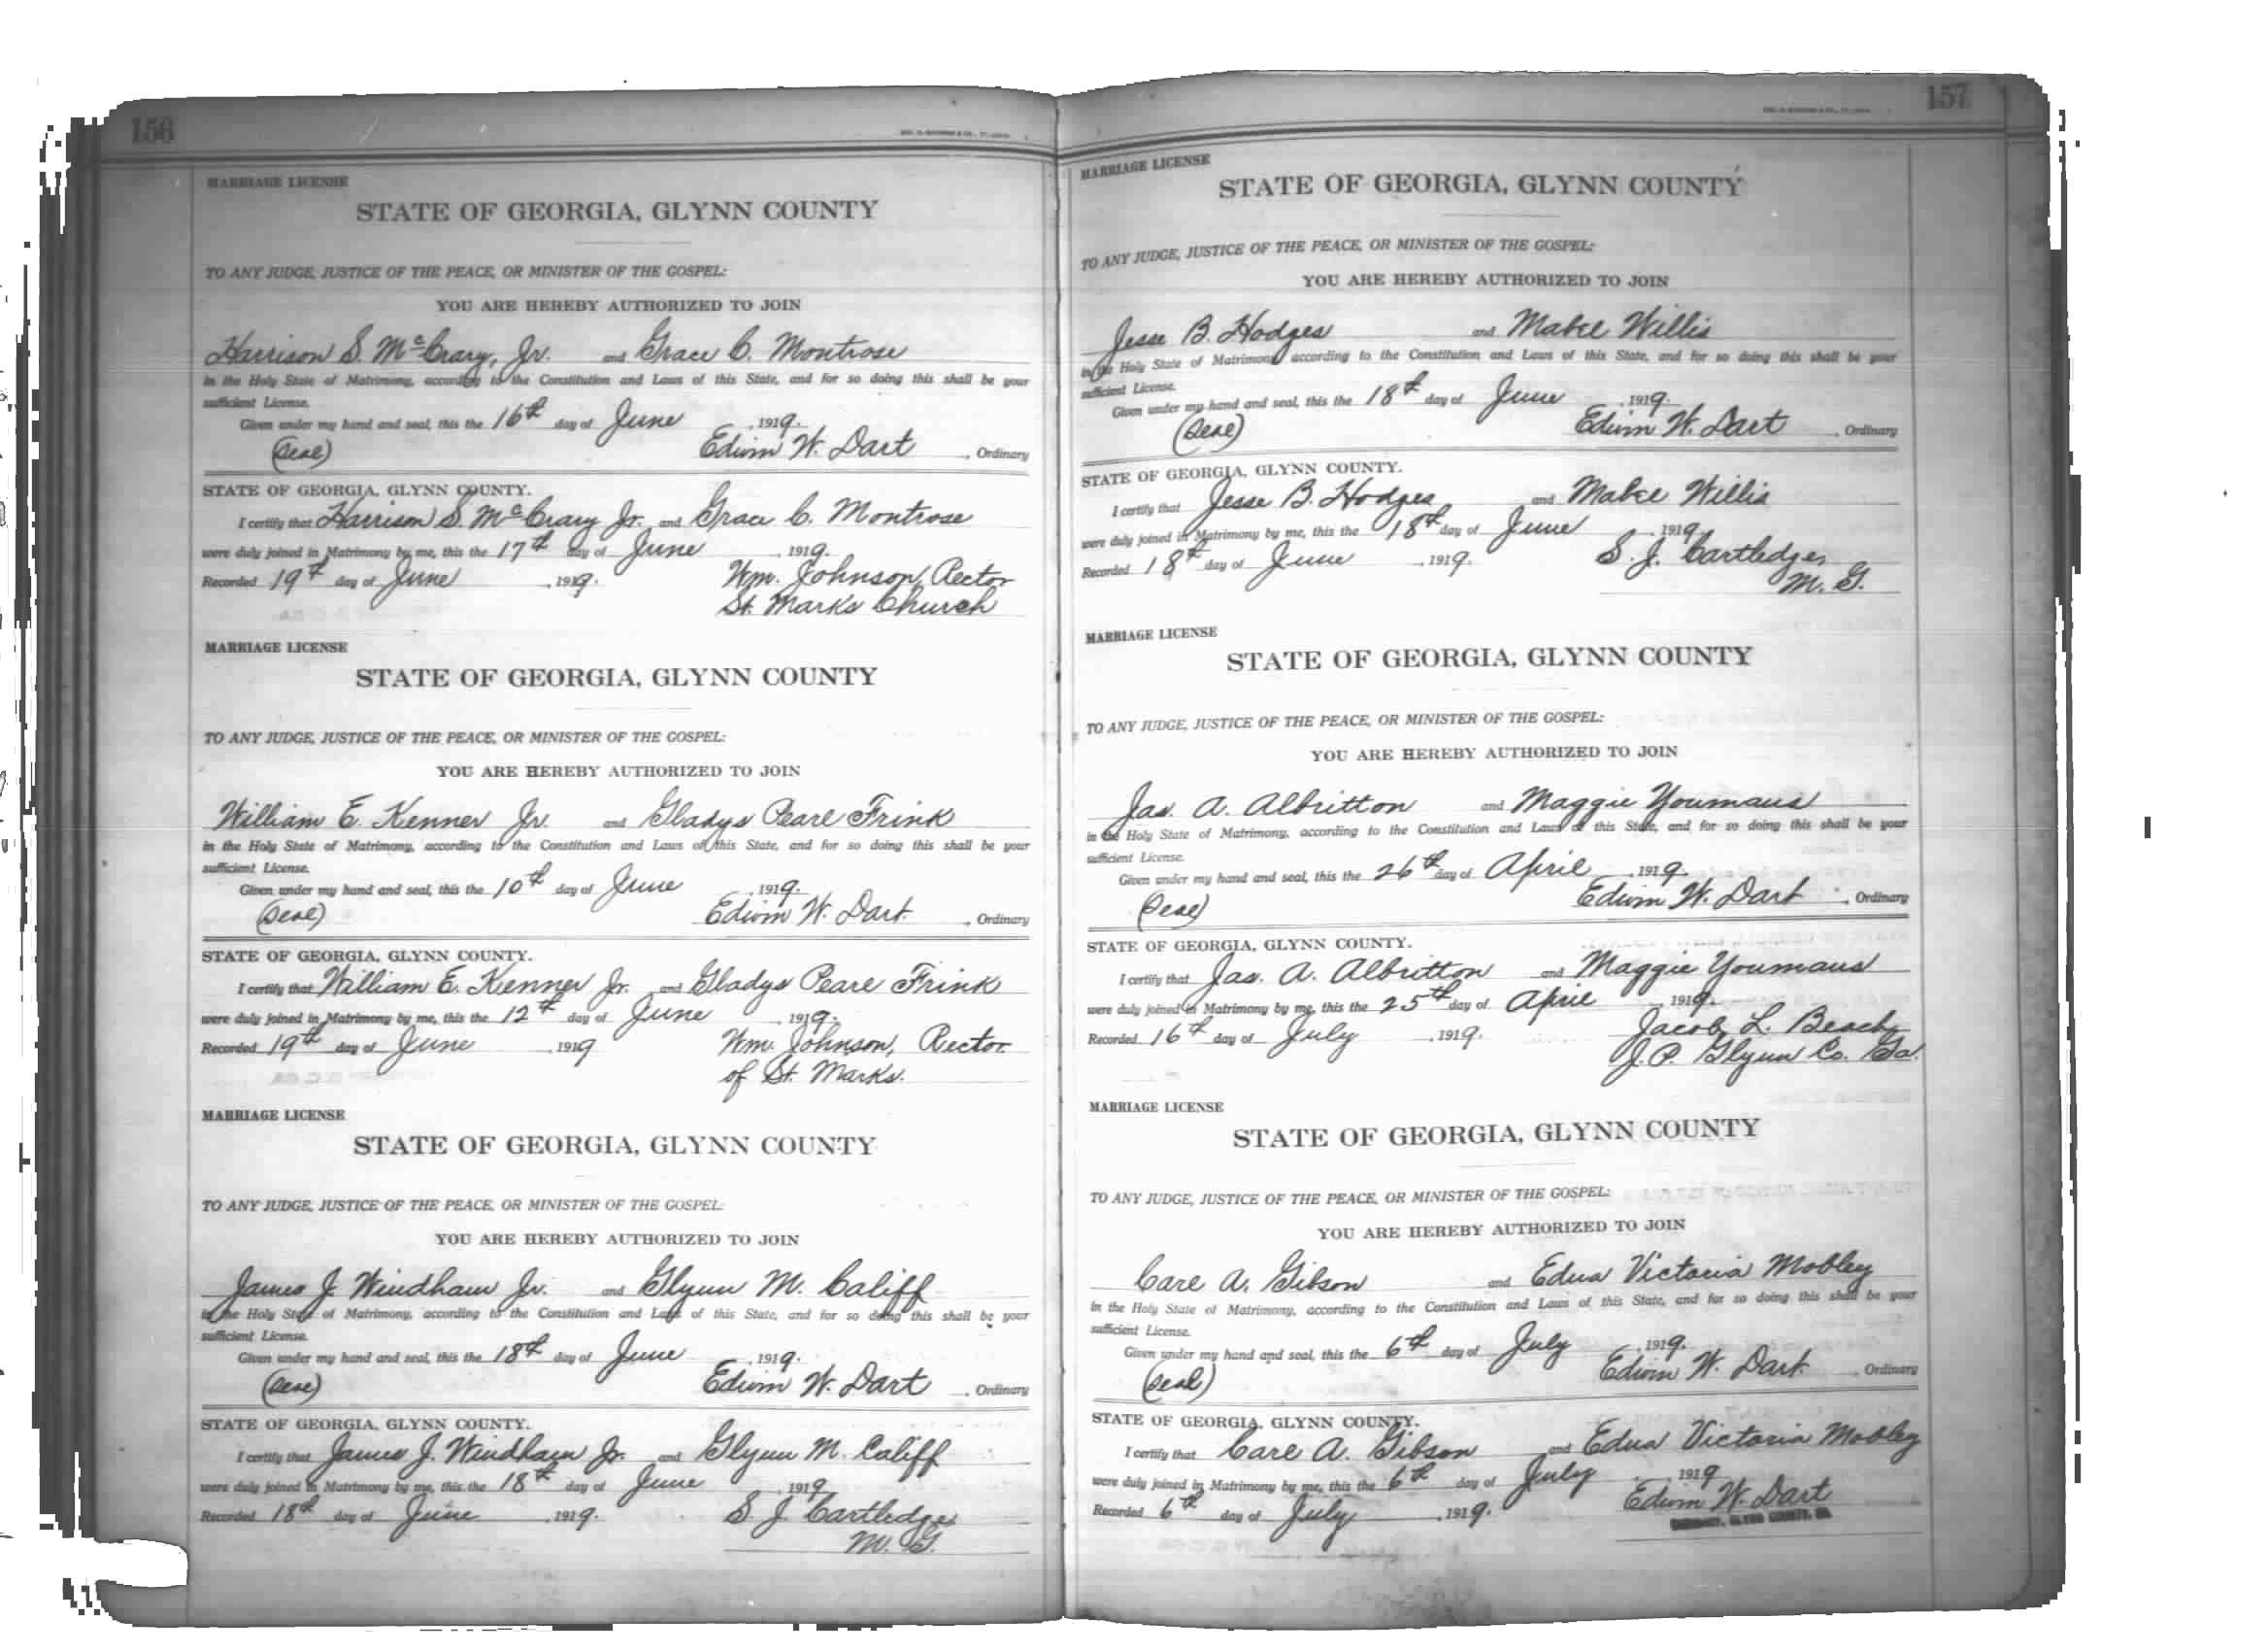 156
MARRIAGE LICENSE
STATE OF GEORGIA, GLYNN COUNTY
TO ANY JUDGE, JUSTICE OF THE PEACE, OR MINISTER OF THE GOSPEL:
YOU ARE HEREBY AUTHORIZED TO JOIN
Harrison S. McCrary, Jr. and Grace C. Montrose
in the Holy State of Matrimony, according to the Constitution and Laws of this State, and for so doing this shall be your
sufficient License.
Given under my hand and seal, this the 16th day of June, 1919.
(Seal) Edwin W. Dart, Ordinary
STATE OF GEORGIA, GLYNN COUNTY.
I certify that Harrison S. McCrary Jr. and Grace C. Montrose
were duly joined in Matrimony by me, this the 17th day of June, 1919.
Recorded 19th day of June, 1919. Wm. Johnson, Rector
St. Marks Church
MARRIAGE LICENSE
STATE OF GEORGIA, GLYNN COUNTY
TO ANY JUDGE, JUSTICE OF THE PEACE, OR MINISTER OF THE GOSPEL:
YOU ARE HEREBY AUTHORIZED TO JOIN
William E. Kenner Jr. and Gladys Pearl Frink
in the Holy State of Matrimony, according to the Constitution and Laws of this State, and for so doing this shall be your
sufficient License.
Given under my hand and seal, this the 10th day of June, 1919.
(Seal) Edwin W. Dart, Ordinary
STATE OF GEORGIA, GLYNN COUNTY.
I certify that William E. Kenner Jr. and Gladys Pearl Frink
were duly joined in Matrimony by me, this the 12th day of June, 1919.
Recorded 19th day of June, 1919 Wm. Johnson, Rector
of St. Marks.
MARRIAGE LICENSE
STATE OF GEORGIA, GLYNN COUNTY
TO ANY JUDGE, JUSTICE OF THE PEACE, OR MINISTER OF THE GOSPEL:
YOU ARE HEREBY AUTHORIZED TO JOIN
James J. Windham Jr. and Glynn M. Califf
in the Holy State of Matrimony, according to the Constitution and Laws of this State, and for so doing this shall be your
sufficient License.
Given under my hand and seal, this the 18th day of June, 1919.
(Seal) Edwin W. Dart, Ordinary
STATE OF GEORGIA, GLYNN COUNTY.
I certify that James J. Windham Jr. and Glynn M. Califf
were duly joined in Matrimony by me, this the 18th day of June, 1919
Recorded 18th day of June, 1919. S. J. Cartledge
M. G.
157
MARRIAGE LICENSE
STATE OF GEORGIA, GLYNN COUNTY
TO ANY JUDGE, JUSTICE OF THE PEACE, OR MINISTER OF THE GOSPEL:
YOU ARE HEREBY AUTHORIZED TO JOIN
Jesse B. Hodges and Mabel Willis
in the Holy State of Matrimony according to the Constitution and Laws of this State, and for so doing this shall be your
sufficient License.
Given under my hand and seal, this the 18th day of June, 1919.
(Seal) Edwin W. Dart, Ordinary
STATE OF GEORGIA, GLYNN COUNTY.
I certify that Jesse B. Hodges and Mabel Willis
were duly joined in Matrimony by me, this the 18th day of June, 1919
Recorded 18th day of June, 1919. S. J. Cartledge,
M. G.
MARRIAGE LICENSE
STATE OF GEORGIA, GLYNN COUNTY
TO ANY JUDGE, JUSTICE OF THE PEACE, OR MINISTER OF THE GOSPEL:
YOU ARE HEREBY AUTHORIZED TO JOIN
Jas. A. Albritton and Maggie Youmans
in the Holy State of Matrimony, according to the Constitution and Laws of this State, and for so doing this shall be your
sufficient License.
Given under my hand and seal, this the 26th day of April, 1919.
(Seal) Edwin W. Dart, Ordinary
STATE OF GEORGIA, GLYNN COUNTY.
I certify that Jas. A. Albritton and Maggie Youmans
were duly joined in Matrimony by me, this the 25th day of April, 1919.
Recorded 16th day of July, 1919. Jacob L. Beach,
J.P. Glynn Co. Ga.
MARRIAGE LICENSE
STATE OF GEORGIA, GLYNN COUNTY
TO ANY JUDGE, JUSTICE OF THE PEACE, OR MINISTER OF THE GOSPEL:
YOU ARE HEREBY AUTHORIZED TO JOIN
Carl A. Gibson and Edna Victoria Mobley
in the Holy State of Matrimony, according to the Constitution and Laws of this State, and for so doing this shall be your
sufficient License.
Given under my hand and seal, this the 6th day of July, 1919.
(Seal) Edwin W. Dart, Ordinary
STATE OF GEORGIA, GLYNN COUNTY.
I certify that Carl A. Gibson and Edna Victoria Mobley
were duly joined in Matrimony by me, this the 6th day of July, 1919
Recorded 6th day of July, 1919. Edwin W. Dart
ORDINARY, GLYNN COUNTY, GA.